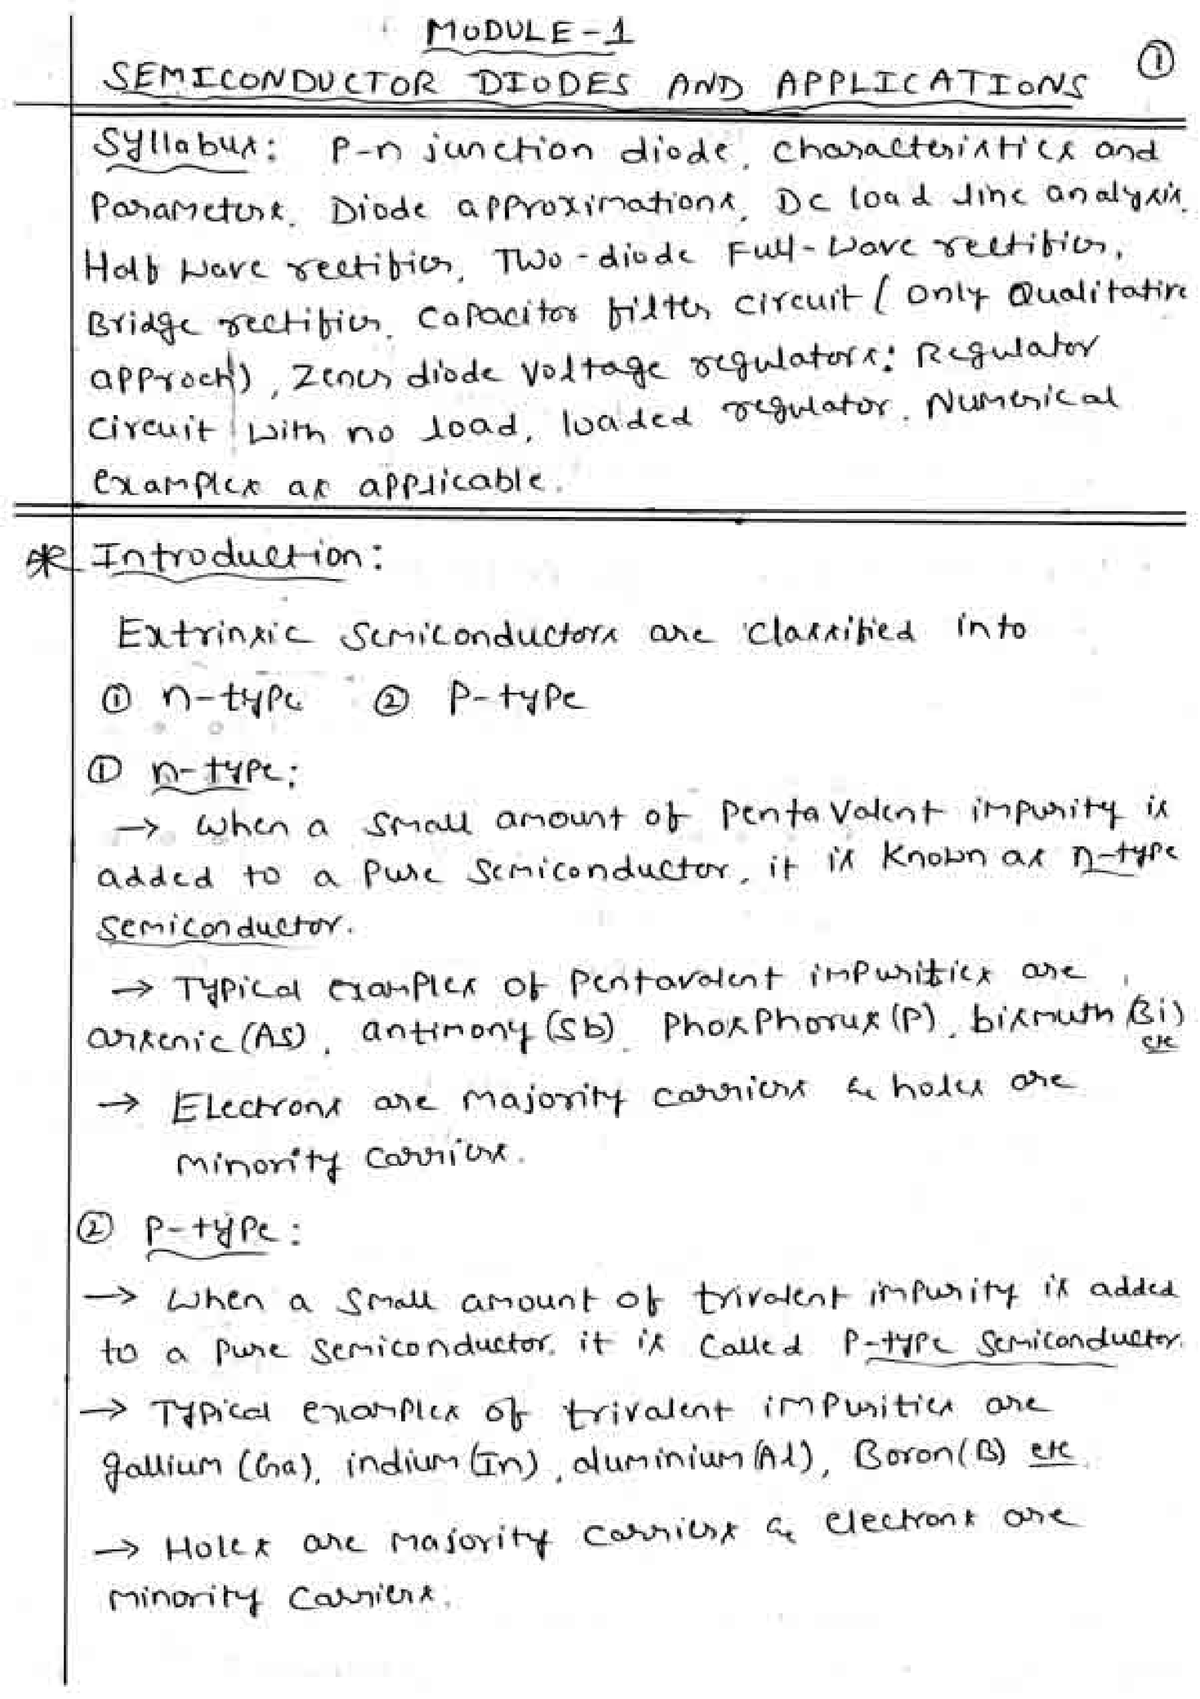 MODULE-1
①
SEMICONDUCTOR DIODES AND APPLICATIONS
Syllabus: P-n junction diode, Characteristics and
Parameters, Diode approximations, DC load line analysis,
Half wave rectifier, Two-diode Full-wave rectifier,
Bridge rectifier, Capacitor filter circuit (only Qualitative
approch), Zener diode voltage regulators: Regulator
circuit with no load, loaded regulator. Numerical
examples as applicable.
* Introduction:
Extrinsic semiconductors are classified into
① n-type ② P-type
① n-type:
→ When a small amount of pentavalent impurity is
added to a pure semiconductor, it is known as n-type
semiconductor.
→ Typical examples of pentavalent impurities are
arsenic (As), antimony (Sb), Phosphorus (P), bismuth (Bi)
etc
→ Electrons are majority carriers & holes are
minority carriers.
② P-type:
→ When a small amount of trivalent impurity is added
to a pure semiconductor, it is called P-type semiconductor.
→ Typical examples of trivalent impurities are
gallium (Ga), indium (In), aluminium (Al), Boron (B) etc.
→ Holes are majority carriers & electrons are
minority carriers.